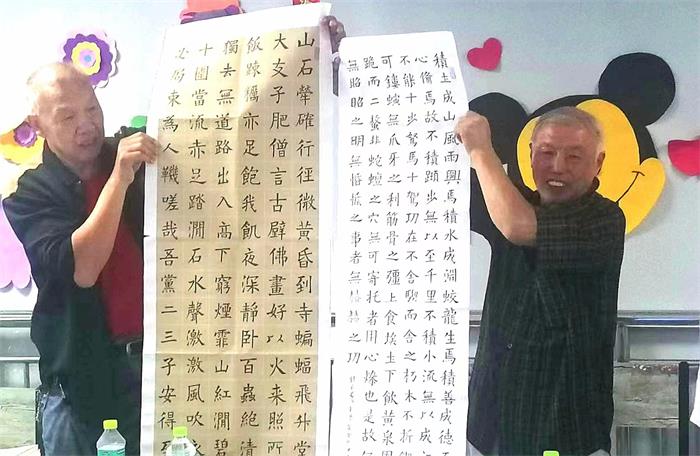 積土成山風雨興焉積水成淵蛟龍生焉積善成德
心備焉故不積蹞步無以至千里不積小流無以成
不能十步駑馬十駕功在不舍鍥而舍之朽木不折
可鏤螾無爪牙之利筋骨之彊上食埃土下飲黃泉
跪而二螯非蛇蟺之穴無可寄托者用心燥也是故
無昭昭之明無惛惛之事者無赫赫之功
山石犖確行徑微黃昏到寺蝙蝠飛升堂
大支子肥僧言古壁佛畫好以火來照所
飯疎糲亦足飽我飢夜深靜臥百蟲絕清
獨去無道路出入高下窮煙霏山紅澗碧
十圍當流赤足踏澗石水聲激激風吹衣
必局束為人鞿嗟哉吾黨二三子安得